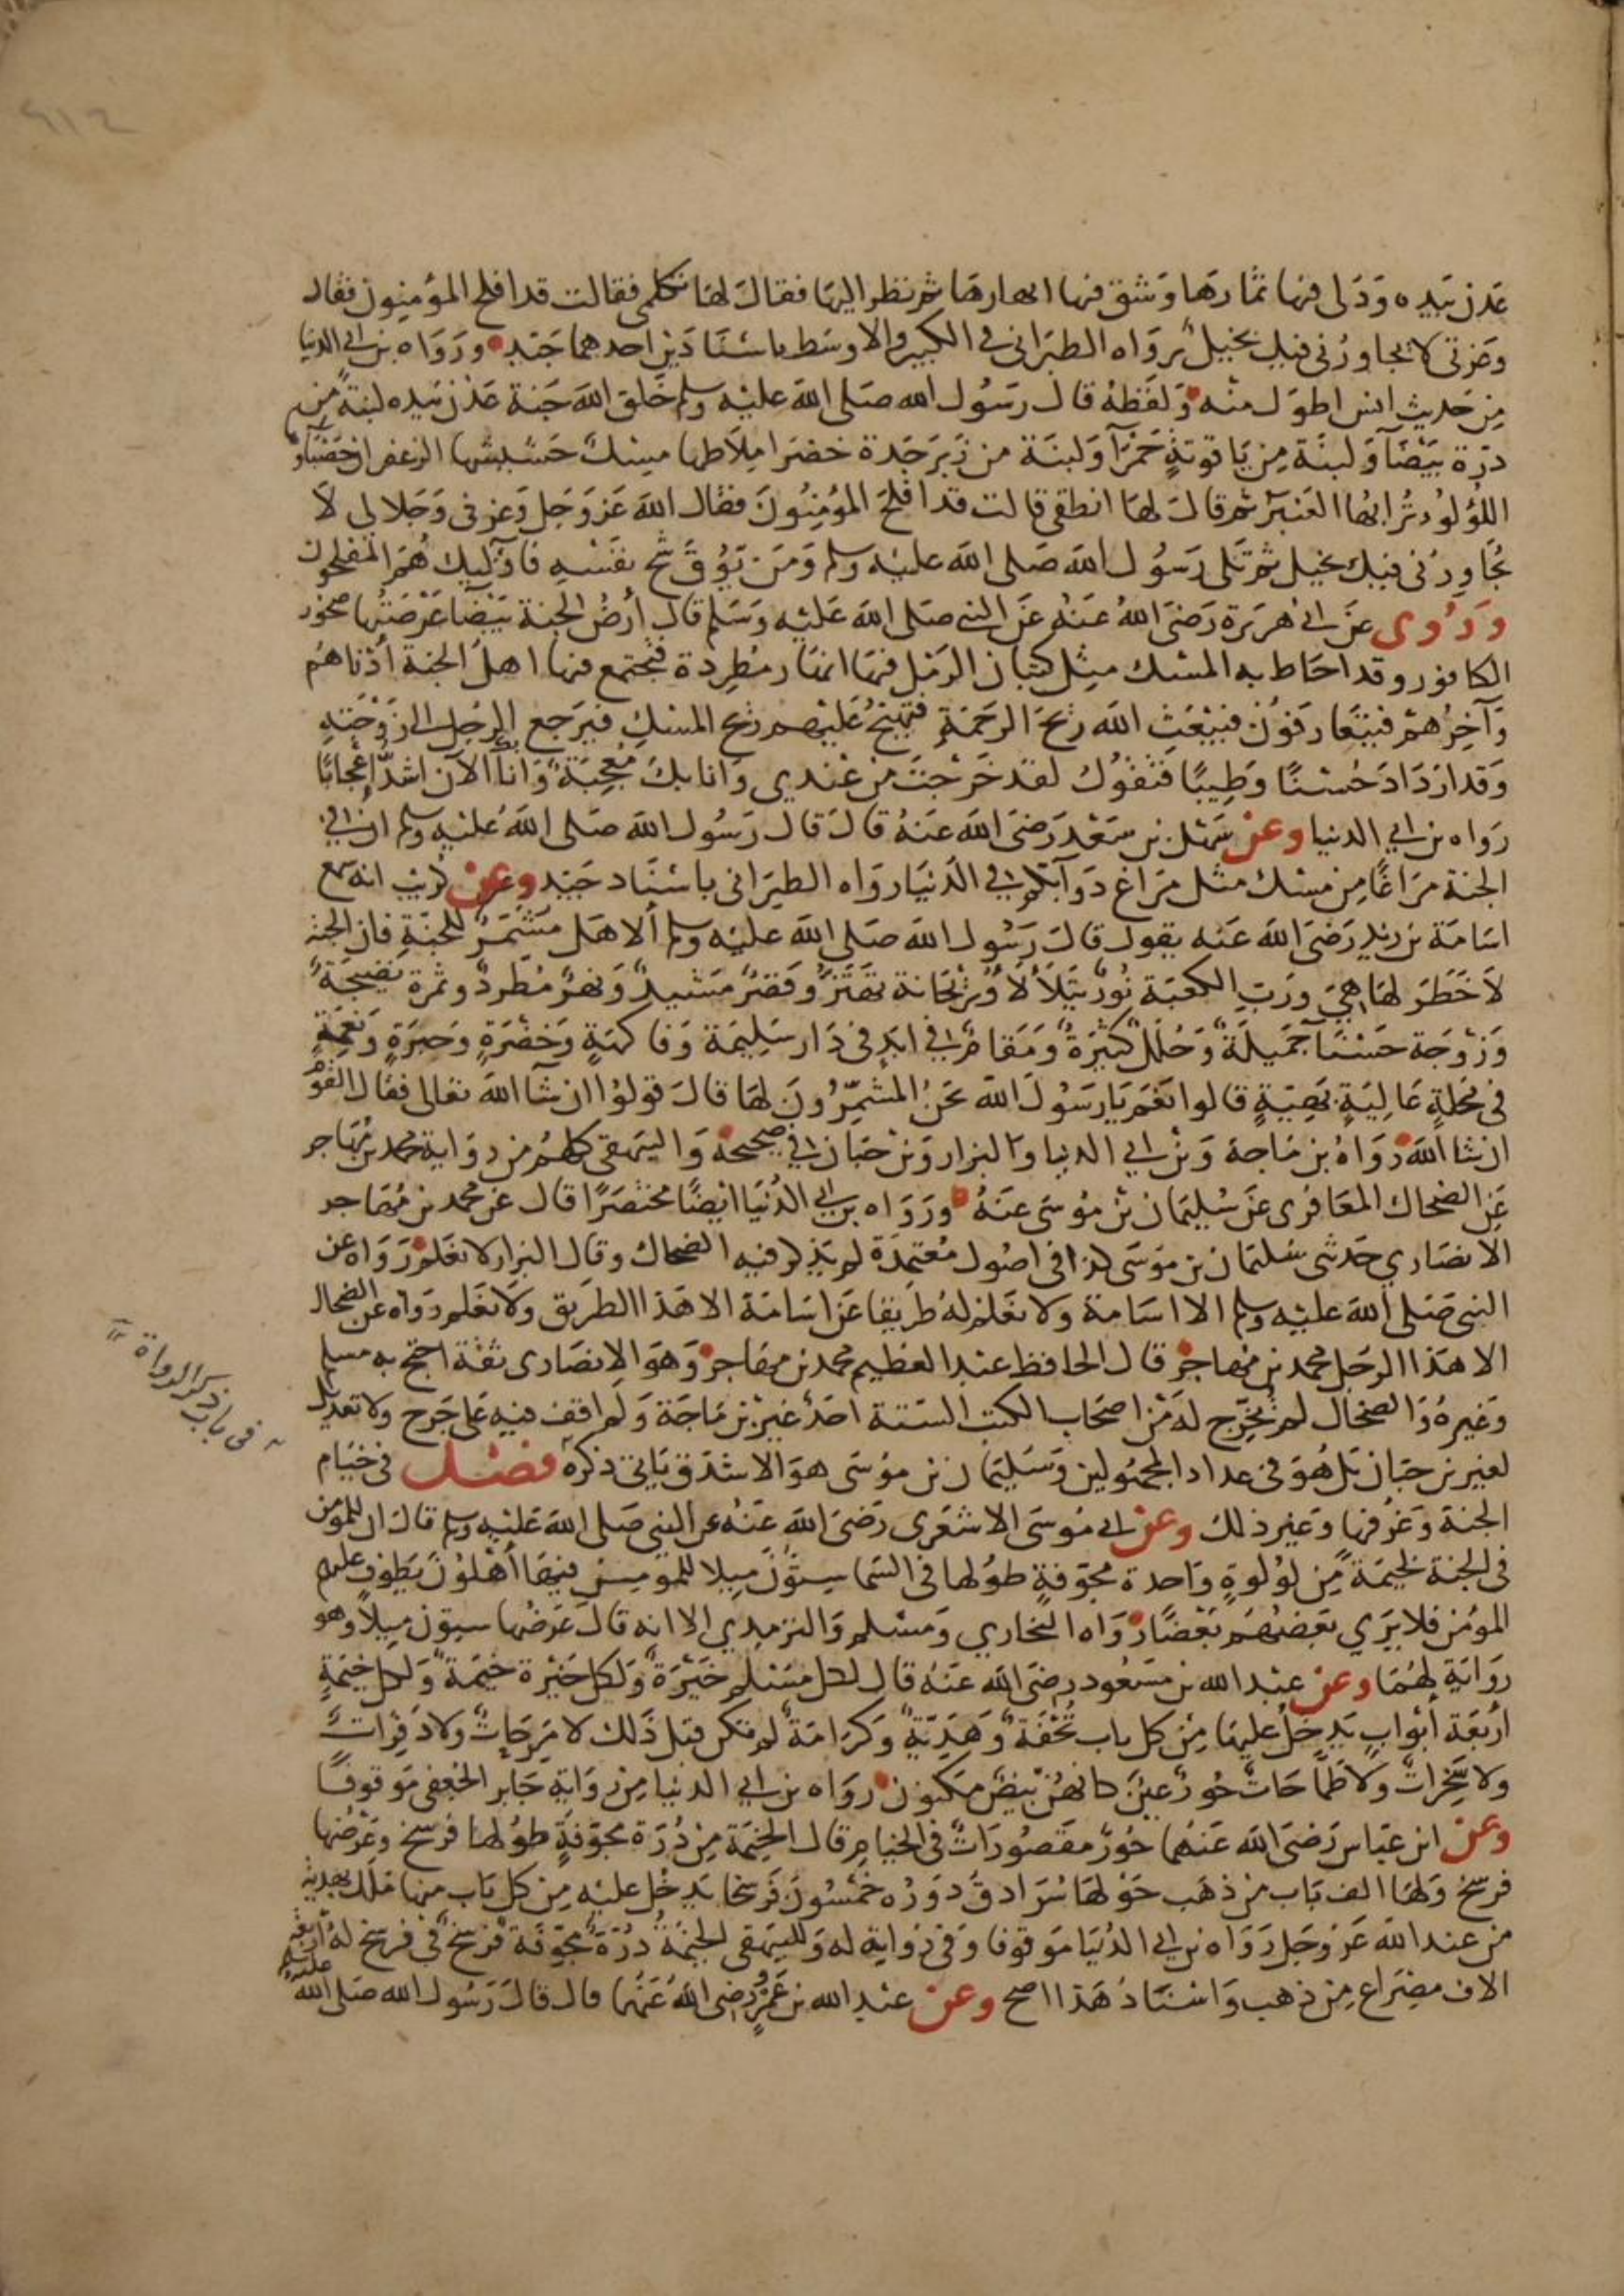 عدن بيده ودلى فيها ثمارها وشق فيها انهارها ثم نظر اليها فقال لها تكلمي فقالت قد افلح المؤمنون فقال
وعزتي لا يجاورني فيك بخيل رواه الطبراني في الكبير والاوسط باسنادين احدهما جيد ورواه بن ابي الدنيا
من حديث انس اطول منه ولفظه قال رسول الله صلى الله عليه وسلم خلق الله جنة عدن بيده لبنة من
درة بيضآ ولبنة من ياقوتة حمرآ ولبنة من زبرجدة خضرا ملاطها مسك حشيشها الزعفران حصبآؤها
اللؤلؤ ترابها العنبر ثم قال لها انطقي قالت قد افلح المؤمنون فقال الله عز وجل وعزتي وجلالي لا
يجاورني فيك بخيل ثم تلى رسول الله صلى الله عليه وسلم ومن يوق شح نفسه فاولئك هم المفلحون
وروى عن ابي هريرة رضي الله عنه عن النبي صلى الله عليه وسلم قال أرض الجنة بيضآ عرصتها صخور
الكافور وقد احاط به المسك مثل كثبان الرمل فيها انهار مطردة فيجتمع فيها اهل الجنة أدناهم
وآخرهم فيتعارفون فيبعث الله ريح الرحمة فتهيج عليهم ريح المسك فيرجع الرجل الى زوجته
وقد ازداد حسنا وطيبا فتقول لقد خرجت من عندي وانا بك معجبة وانا بك الآن اشد اعجابا
رواه بن ابي الدنيا وعن سهل بن سعد رضي الله عنه قال قال رسول الله صلى الله عليه وسلم ان في
الجنة مراغا من مسك مثل مراغ دوآبكم في الدنيا رواه الطبراني باسناد جيد وعن كريب انه سمع
اسامة بن زيد رضي الله عنه يقول قال رسول الله صلى الله عليه وسلم ألا هل مشمر للجنة فان الجنة
لا خطر لها هي ورب الكعبة نور يتلألأ وريحانة تهتز وقصر مشيد ونهر مطرد وثمرة نضيجة
وزوجة حسنآ جميلة وحلل كثيرة ومقام في ابد في دار سليمة وفاكهة وخضرة وحبرة ونعمة
في محلة عالية بهية قالوا نعم يا رسول الله نحن المشمرون لها قال قولوا ان شآ الله تعالى فقال القوم
ان شا الله رواه بن ماجة وبن ابي الدنيا والبزار وبن حبان في صحيحه والبيهقي كلهم من رواية محمد بن مهاجر
عن الضحاك المعافري عن سليمان بن موسى عنه ورواه بن ابي الدنيا ايضا مختصرا قال عن محمد بن مهاجر
الانصاري حدثني سليمان بن موسى كذا في اصول معتمدة لم يذكر فيه الضحاك وقال البزار لا نعلم رواه عن
النبي صلى الله عليه وسلم الا اسامة ولا نعلم له طريقا عن اسامة الا هذا الطريق ولا نعلم رواه عن الضحاك
الا هذا الرجل محمد بن مهاجر قال الحافظ عبد العظيم محمد بن مهاجر وهو الانصاري ثقة احتج به مسلم
وغيره والضحاك لم يخرج له من اصحاب الكتب الستة احد غير بن ماجة ولم اقف فيه على جرح ولا تعديل
لغير بن حبان بل هو في عداد المجهولين وسليمان بن موسى هو الاشدق ياتي ذكره فصل في خيام
الجنة وغرفها وغير ذلك وعن ابي موسى الاشعري رضي الله عنه عن النبي صلى الله عليه وسلم قال ان للمومن
في الجنة لخيمة من لؤلوة واحدة مجوفة طولها في السما ستون ميلا للمومن فيها أهلون يطوف عليهم
المؤمن فلا يرى بعضهم بعضا رواه البخاري ومسلم والترمدي الا انه قال عرضها ستون ميلا وهو
رواية لهما وعن عبد الله بن مسعود رضي الله عنه قال لكل مسلم خيرة ولكل خيرة خيمة ولكل خيمة
أربعة أبواب يدخل عليها من كل باب تحفة وهدية وكرامة لم تكن قبل ذلك لا مرحات ولا دفرات
ولا سخرات ولا طماحات حور عين كانهن بيض مكنون رواه بن ابي الدنيا من رواية جابر الجعفي موقوفا
وعن ابن عباس رضي الله عنهما حور مقصورات في الخيام قال الخيمة من درة مجوفة طولها فرسخ وعرضها
فرسخ ولها الف باب من ذهب حولها سرادق دوره خمسون فرسخا يدخل عليه من كل باب منها ملك بهدية
من عند الله عز وجل رواه بن ابي الدنيا موقوفا وفي رواية له وللبيهقي الخيمة درة مجوفة فرسخ في فرسخ له أربعة
الاف مصراع من ذهب واسناد هذا اصح وعن عبد الله بن عمرو رضي الله عنهما قال قال رسول الله صلى الله عليه وسلم
في باب ذكر الرواة